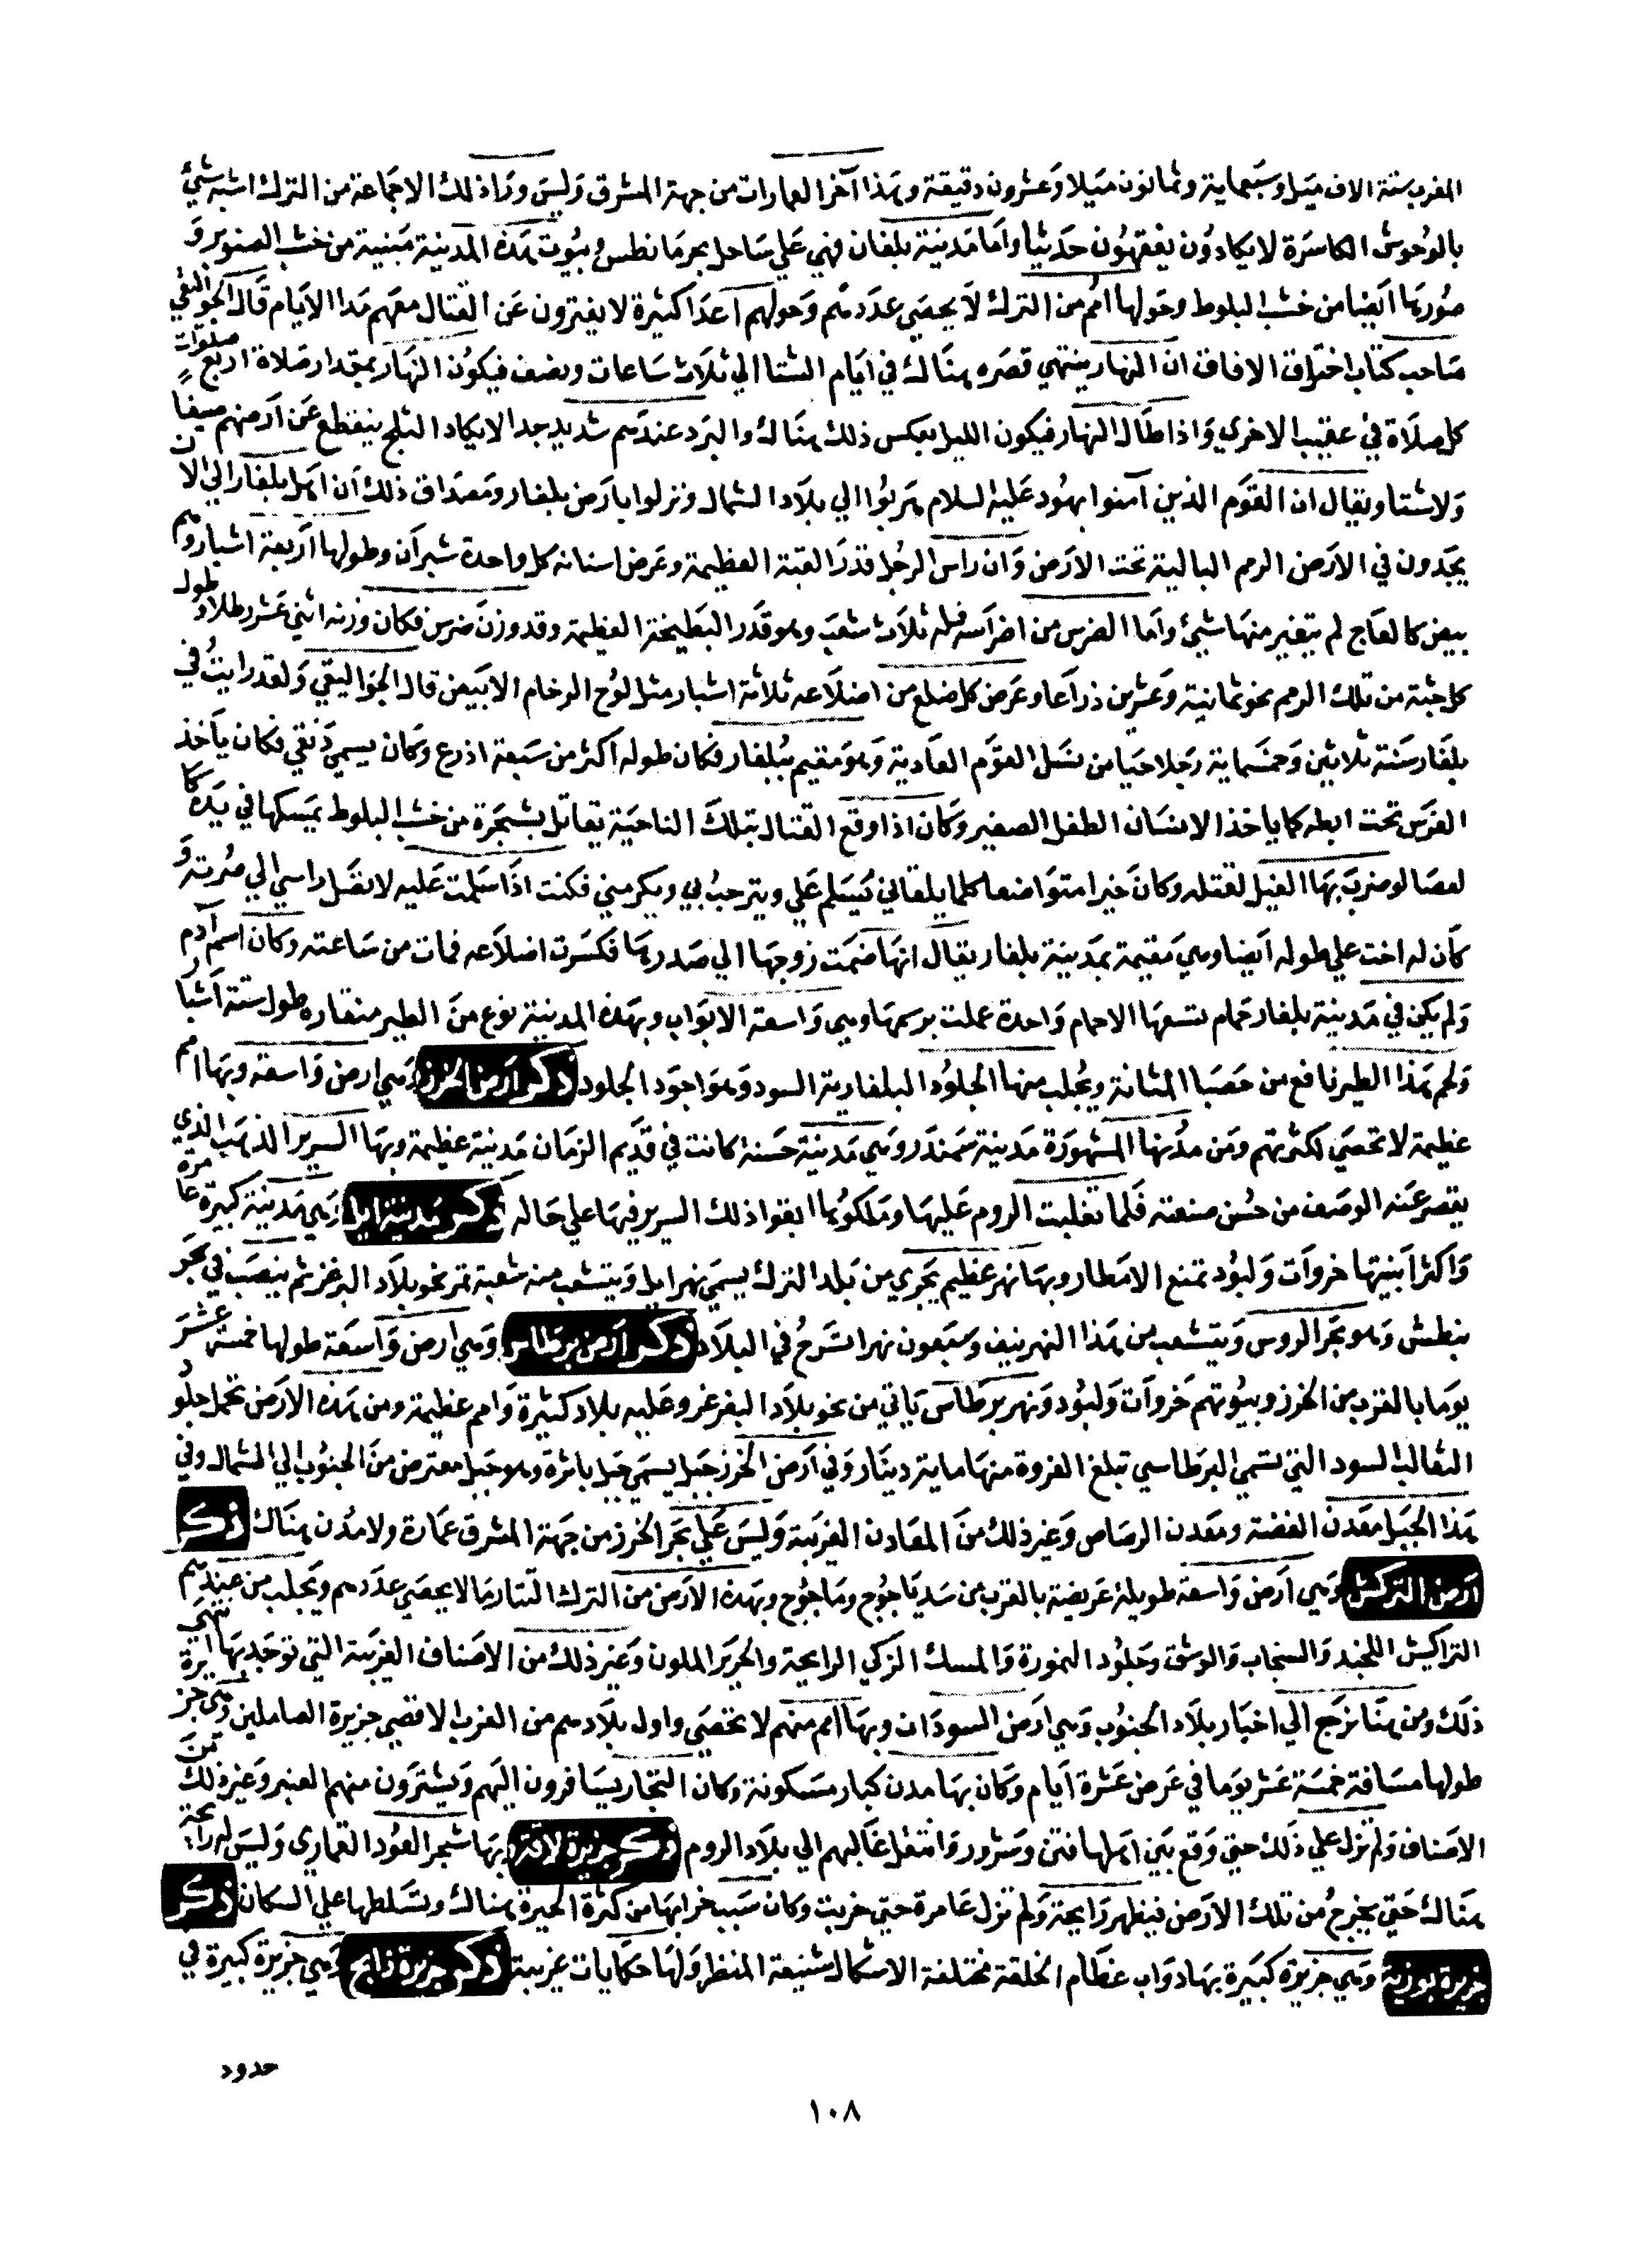 المغرب ستة الاف ميل وسبعماية وثمانون ميلا وعشرون دقيقة وهذا آخر العمارات من جهة المشرق وليس وراذلك الاجماعة من الترك اشبه شيئ
بالوحوش الكاسرة لايكادون يفقهون حديثا واما مدينة بلغار فهي علي ساحل بحر مانطس وبيوت هذه المدينة مبنية من خشب الصنوبر و
صورها ايضا من خشب البلوط وحولها امم من الترك لا يحصي عددهم وحولهم اعدا كثيرة لا يفترون عن القتال معهم مدا الايام قال الجواليقي
صاحب كتاب اختراق الافاق ان النهار ينتهي قصره هناك في ايام الشتا الي ثلاث ساعات ونصف فيكون النهار بمقدار صلاة اربع صلوات
كل صلاة في عقيب الاخري واذا طال النهار فيكون الليل بعكس ذلك هناك والبرد عندهم شديد جدا لايكاد الثلج ينقطع عن ارضهم صيفا
ولاشتا ويقال ان القوم الذين آمنوا بهود عليه السلام هربوا الي بلاد الشمال ونزلوا بارض بلغار ومصداق ذلك ان اهل بلغار الي الان
يجدون في الارض الرمم البالية تحت الارض وان راس الرجل قدر القبة العظيمة وعرض اسنانه كل واحدة شبران وطولها اربعة اشبار وهم
بيض كالعاج لم يتغير منها شيئ واما الضرس من اضراسه فله ثلاث شعب وهو قدر البطيخة العظيمة وقد وزن ضرس فكان وزنه اثني عشر رطلا وطول
كل جثة من تلك الرمم نحو ثمانية وعشرين ذراعا وعرض كل ضلع من اضلاعه ثلاثة اشبار مثل لوح الرخام الابيض قال الجواليقي ولقد رايت في
بلغار سنة ثلاثين وخمسماية رجلا حيا من نسل القوم العادية وهو مقيم ببلغار فكان طوله اكثر من سبعة اذرع وكان يسمي دنقي فكان ياخذ
الفرس تحت ابطه كما ياخذ الانسان الطفل الصغير وكان اذا وقع القتال بتلك الناحية يقاتل بشجرة من خشب البلوط يمسكها في يده كا
لعصا لو ضرب بها الفيل لقتله وكان خيرا متواضعا كلما يلقاني يسلم علي ويترحب بي ويكرمني فكنت اذا سلمت عليه لا تصل راسي الي صرته و
كان له اخت علي طوله ايضا وهي مقيمة بمدينة بلغار يقال انها ضمت زوجها الي صدرها فكسرت اضلاعه فمات من ساعته وكان اسمه آدم
ولم يكن في مدينة بلغار حمام تسعها الا حمام واحدة عملت برسمها وهي واسعة الابواب وبهذه المدينة نوع من الطير منقاره طول ستة اشبار
ولحم هذا الطير نافع من حصبا المثانة ويجلب منها الجلود البلغارية السود وهو اجود الجلود ذكر ارض الخزر وهي ارض واسعة وبها امم
عظيمة لا تحصي لكثرتهم ومن مدنها المشهورة مدينة سمندر وهي مدينة حسنة كانت في قديم الزمان مدينة عظيمة وبها السرير الذهب الذي
يقصر عنه الوصف من حسن صنعته فلما تغلبت الروم عليها وملكوها ابقوا ذلك السرير فيها علي حاله ذكر مدينة ايل وهي مدينة كبيرة عامرة
واكثر ابنيتها خروات ولبود تمنع الامطار وبها نهر عظيم يجري من بلد الترك يسمي نهر ايل ويتشعب منه شعبة تمر نحو بلاد البرغز ثم ينصب في بحر
بنطش وهو بحر الروس ويتشعب من هذا النهر نيف وسبعون نهرا تسرح في البلاد ذكر ارض برطاس وهي ارض واسعة طولها خمسة عشر
يوما بالقرب من الخزر وبيوتهم خروات ولبود ونهر برطاس ياتي من نحو بلاد البغرغر وعليه بلاد كثيرة وامم عظيمة ومن هذه الارض تحمل جلود
الثعالب السود التي تسمي البرطاسي تبلغ الفروة منها ماية دينار وفي ارض الخزر جبل يسمي جبل باثرة وهو جبل معترض من الجنوب الي الشمال وفي
هذا الجبل معدن الفضة ومعدن الرصاص وغير ذلك من المعادن الغريبة وليس علي بحر الخزر من جهة المشرق عمارة ولا مدن هناك ذكر
ارض التركش وهي ارض واسعة طويلة عريضة بالقرب من سد ياجوج وماجوج وبهذه الارض من الترك التتار ما لا يحصي عددهم ويجلب من عندهم
التراكيش اللجند والسنجاب والوشق وجلود النمورة والمسك الزكي الرايحة والحرير الملون وغير ذلك من الاصناف الغريبة التي توجد بها انتهي
ذلك ومن هنا نرجع الي اخبار بلاد الجنوب وهي ارض السودان وبها امم منهم لا تحصي واول بلادهم من الغرب الاقصي جزيرة العاملين وهي جزيرة
طولها مسافة خمسة عشر يوما في عرض عشرة ايام وكان بها مدن كبار مسكونة وكان التجار يسافرون اليهم ويشترون منهم العنبر وغير ذلك من
الاصناف ولم تزل علي ذلك حتي وقع بين اهلها فتن وشرور وانتقل غالبهم الي بلاد الروم ذكر جزيرة لاقة بها شجر العود القماري وليس له رايحة
هناك حتي يخرج من تلك الارض فيظهر رايحته ولم تزل عامرة حتي خربت وكان سبب خرابها من كثرة الحيرة هناك وتسلطها علي السكان ذكر
جزيرة نورية وهي جزيرة كبيرة بها دواب عظام الخلقة مختلفة الاشكال شنيعة المنظر ولها حكايات غريبة ذكر جزيرة زالج وهي جزيرة كبيرة في
حدود
١٠٨